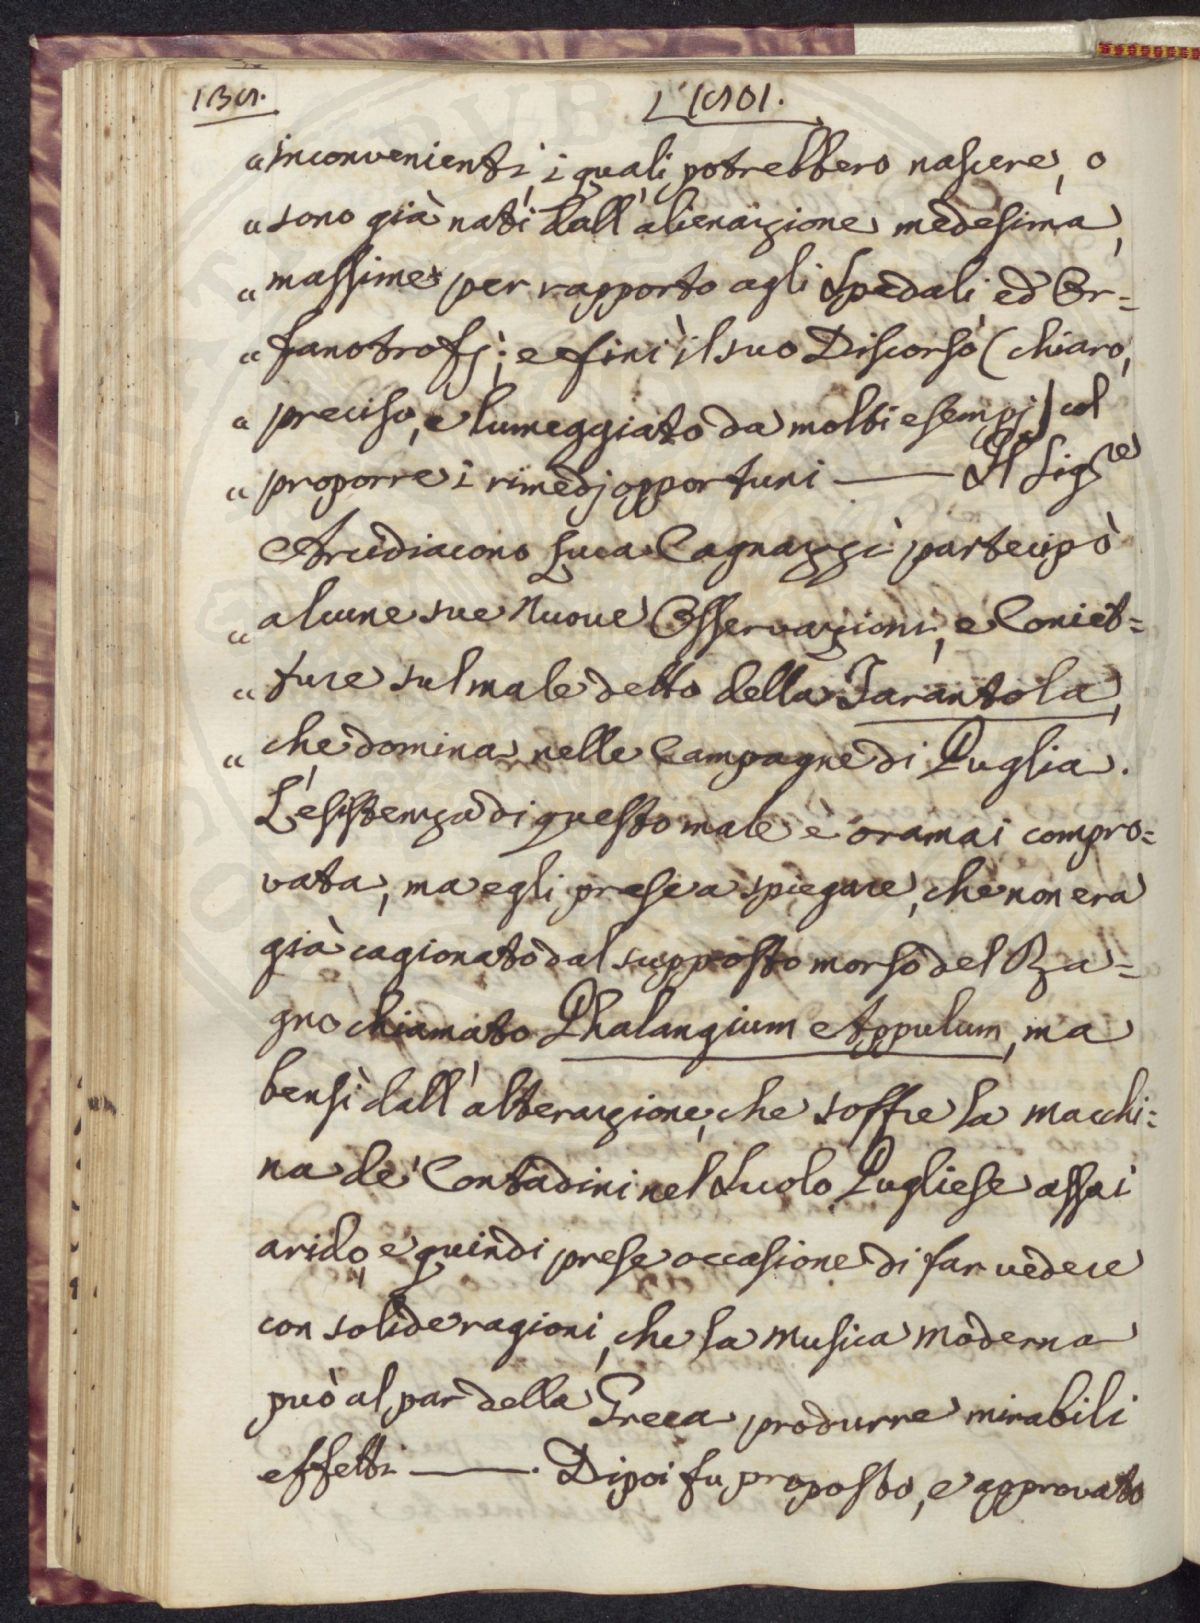 134. 1801.
„ inconvenienti, i quali potrebbero nascere, o
„ sono già nati dall'alienazione medesima,
„ massime per rapporto agli Spedali ed Or=
„ fanotrofj; e finì il suo Discorso (chiaro,
„ preciso, e lumeggiato da molti esempj) col
„ proporre i rimedj opportuni —— Il Sig.re
Arcidiacono Luca Cagnazzi partecipò
„ alcune sue nuove Osservazioni, e Coniet=
„ ture sul male detto della Tarantola,
„ che domina nelle Campagne di Puglia.
L'esistenza di questo male è oramai compro=
vata, ma egli prese a spiegare, che non era
già cagionato dal supposto morso del Ra=
gno chiamato Phalangium Appulum, ma
bensì dall'alterazione, che soffre la macchi=
na de' Contadini nel Suolo Pugliese assai
arido, e quindi prese occasione di far vedere
con solide ragioni, che la Musica Moderna
può al par della Greca produrre mirabili
effetti ——. Dipoi fu proposto, e approvato